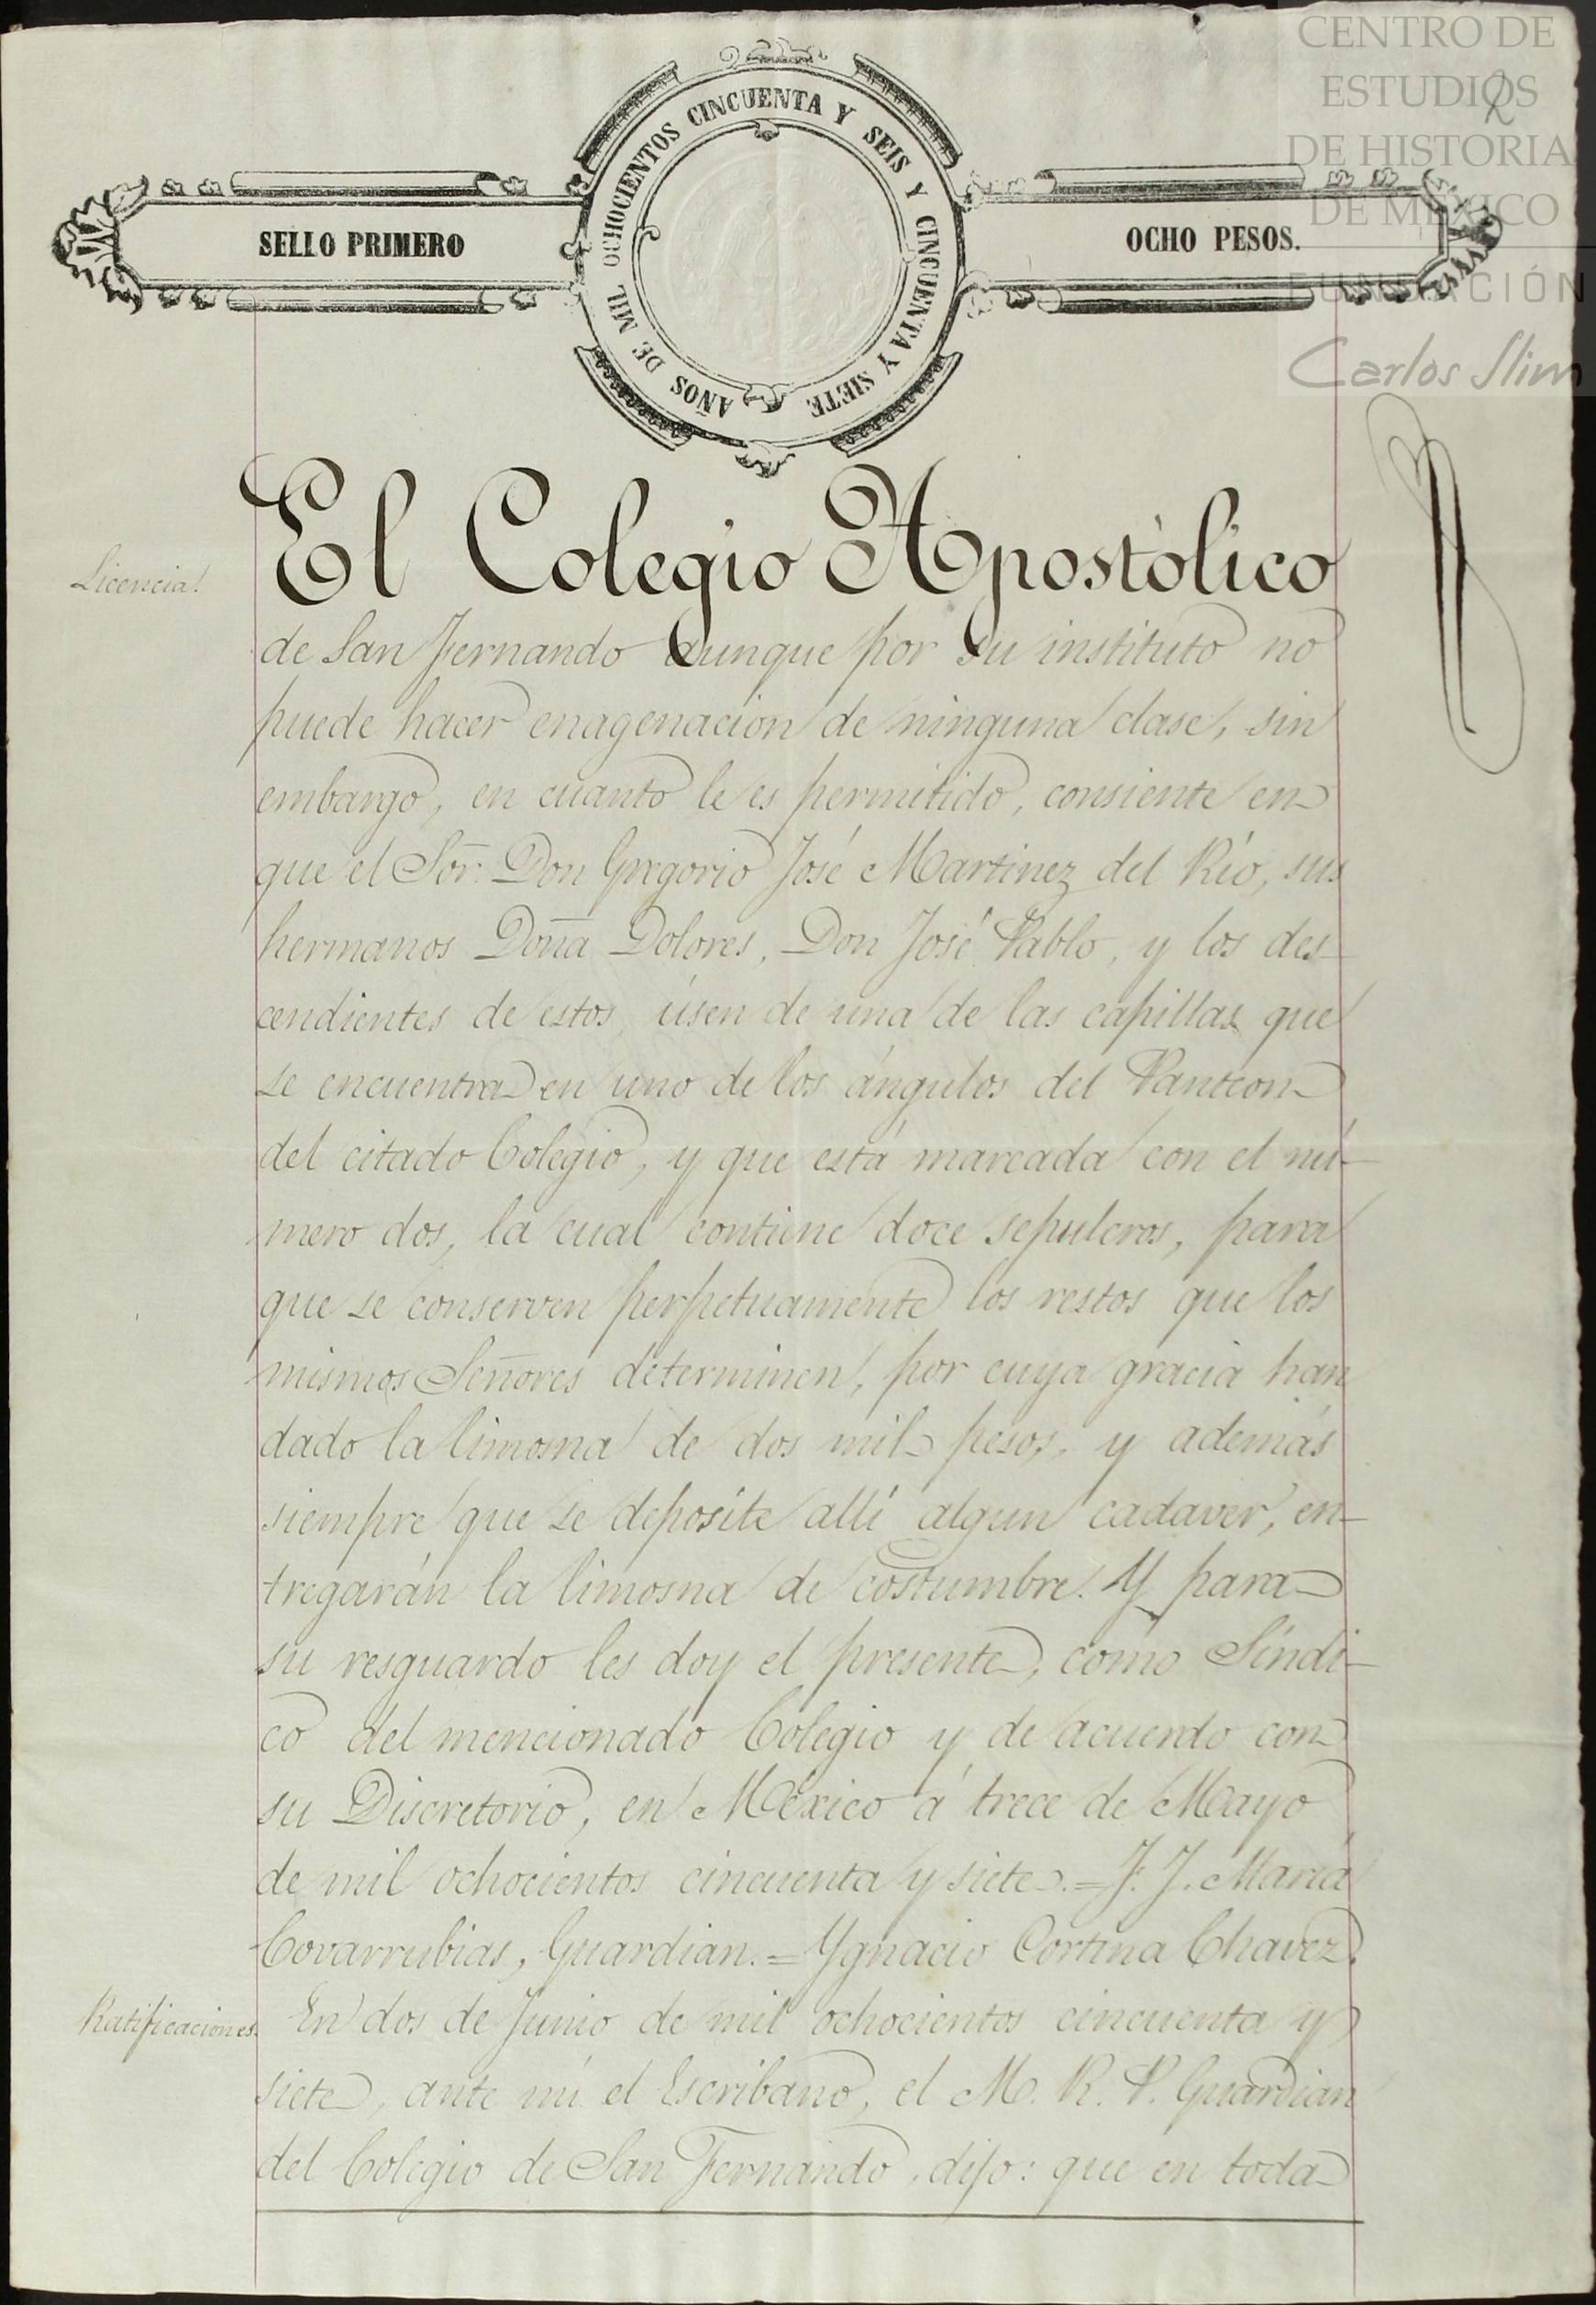 CENTRO DE
ESTUDIOS
DE HISTORIA
DE MÉXICO
FUNDACIÓN
Carlos Slim
SELLO PRIMERO
AÑOS DE MIL OCHOCIENTOS CINCUENTA Y SEIS Y CINCUENTA Y SIETE
OCHO PESOS.
Licencia.
El Colegio Apostòlico
de San Fernando aunque por su instituto no
puede hacer enagenacion de ninguna clase, sin
embargo, en cuanto le es permitido, consiente en
que el Sor. Don Gregorio José Martinez del Rio, sus
hermanos Doña Dolores, Don José Pablo, y los des-
cendientes de estos, úsen de una de las capillas que
se encuentra en uno de los ángulos del Panteon
del citado Colegio, y que está marcada con el nú-
mero dos, la cual contiene doce sepulcros, para
que se conserven perpetuamente los restos que los
mismos Señores determinen, por cuya gracia han
dado la limosna de dos mil pesos, y además
siempre que se deposite allí algun cadaver, en-
tregarán la limosna de costumbre. Y para
su resguardo les doy el presente, como Síndi-
co del mencionado Colegio y de acuerdo con
su Discretorio, en México á trece de Mayo
de mil ochocientos cincuenta y siete.=F. J. Maria
Covarrubias, Guardian.=Ygnacio Cortina Chavez.
Ratificaciones.
En dos de Junio de mil ochocientos cincuenta y
siete, ante mí el Escribano, el M. R. P. Guardian
del Colegio de San Fernando, dijo: que en toda